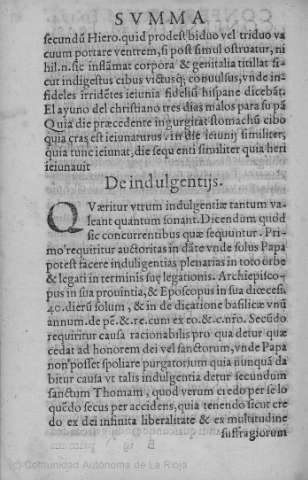 SVMMA
secundũ Hiero. quid prodest biduo vel triduo va
cuum portare ventrem, si post simul ostruatur, ni
hil. n. sic inflãmat corpora & genitalia titillat si-
cut indigestus cibus victusq; conuulsus, vnde in-
fideles irridẽtes ieiunia fideliũ hispane dicebãt.
El ayuno del christiano tres dias malos para su pã
Quia die præcedente ingurgitat stomachũ cibo
quia cras est ieiunaturus. in die ieiunij similiter,
quia tunc ieiunat, die sequenti similiter quia heri
ieiunauit
De indulgentijs.
QVæritur vtrum indulgentiæ tantum va-
leant quantum sonant. Dicendum quòd
sic concurrentibus quæ sequuntur. Pri-
mo requiritur auctoritas in dãte vnde solus Papa
potest facere induligentias plenarias in toto orbe
& legati in terminis suę legationis. Archiepisco-
pus in sua prouintia, & Eposcopus in sua diœcesi.
40. dierũ solum, & in de dicatione basilicæ vnũ
annum. de pẽ. & re. cum ex eo. & c. nr̃o. Secũdo
requiritur causa rationabilis pro qua detur quæ
cedat ad honorem dei vel sanctorum, vnde Papa
non posset spoliare purgatorium quia nunquã da
bitur causa vt talis indulgentia detur secundum
sanctum Thomam, quod verum credo per se lo
quẽdo secus per accidens, quia tenendo sicut cre
do ex dei infinita liberalitate & ex multitudine
suffragiorum
(c) Comunidad Autónoma de La Rioja